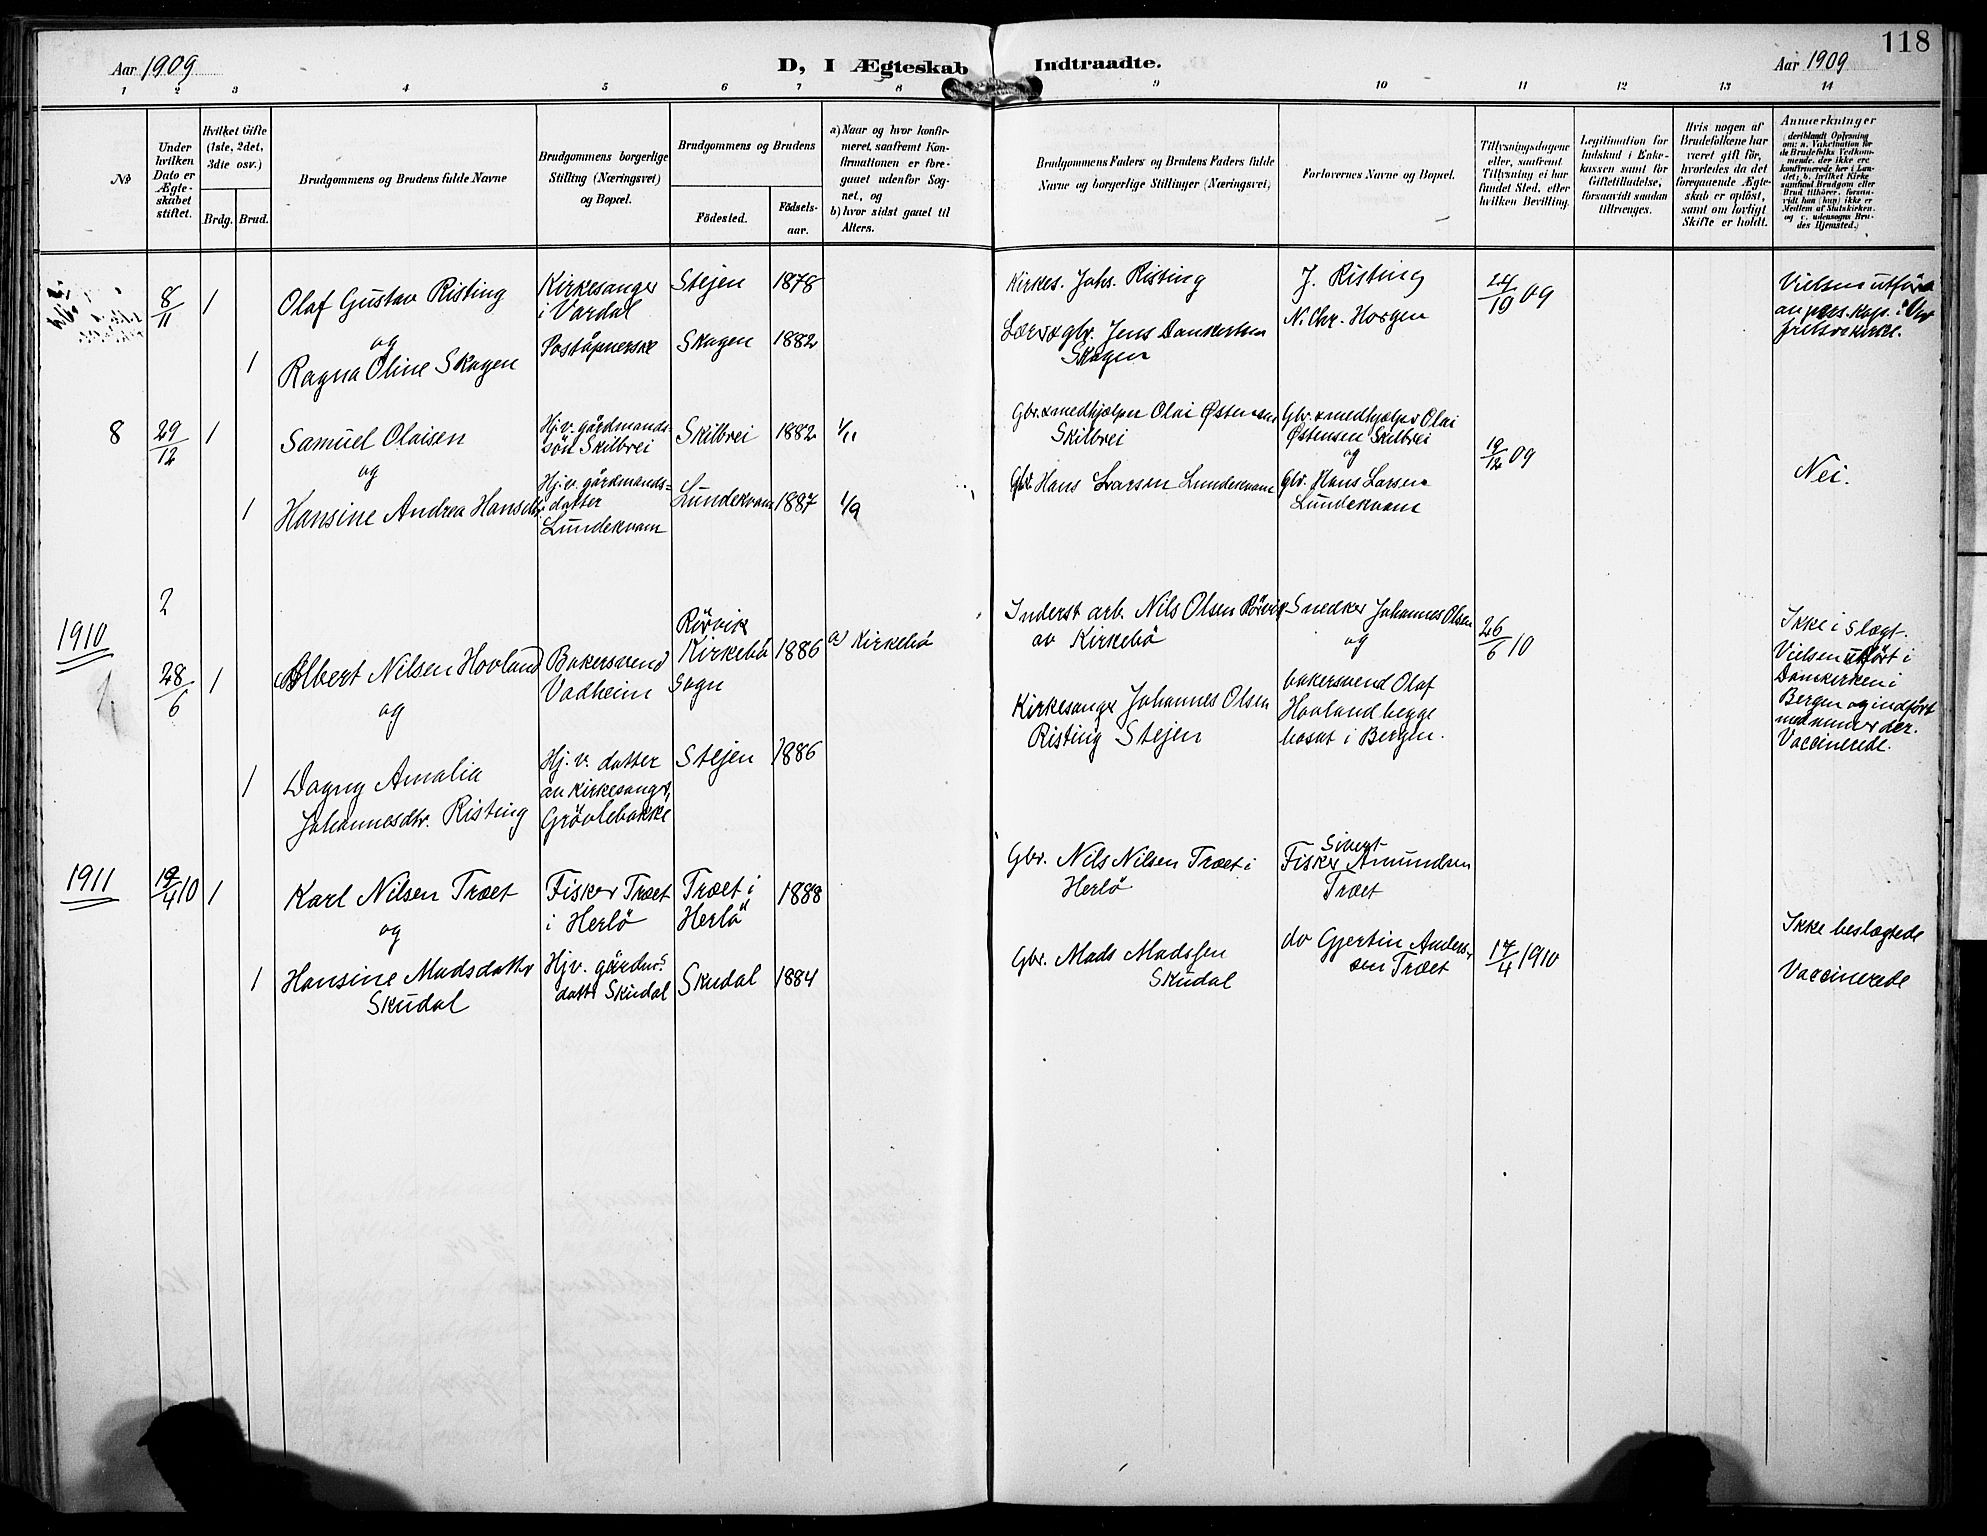 118
Aar 1909
D, I Ægteskab Indtraadte.
Aar 1909
1 2 3 4 5 6 7 8 9 10 11 12 13 14
No
Under hvilken Dato er Ægteskabet stiftet.
Hvilket Gifte (1ste, 2det, 3die osv.)
Brdg. Brud.
Brudgommens og Brudens fulde Navne
Brudgommens borgerlige Stilling (Næringsvei) og Bopæl.
Brudgommens og Brudens
Födested.
Födselsaar.
a) Naar og hvor konfirmeret, saafremt Konfirmationen er foregaaet udenfor Sognet, og
b) hvor sidst gaaet til Alters.
Brudgommens Faders og Brudens Faders fulde Navne og borgerlige Stillinger (Næringsvei)
Forlovernes Navne og Bopæl.
Tillysningsdagene eller, saafremt Tillysning ei har fundet Sted, efter hvilken Bevilling.
Legitimation for Indskud i Enkekassen samt for Giftetilladelse, forsaavidt saadan tiltrænges.
Hvis nogen af Brudefolkene har været gift för, hvorledes da det foregaaende Ægteskab er oplöst, samt om lovligt Skifte er holdt.
Anmerkninger (deriblandt Oplysning om: a. Vakcination for de Brudefolks Vedkommende, der ikke ere konfirmerede her i Landet; b. hvilket Kirkesamfund Brudgom eller Brud tilhörer, forsaavidt han (hun) ikke er Medlem af Statskirken, og c. udensogns Brudes Hjemsted.)
8/11 1 Olaf Gustav Risting
Kirkesanger
i Vardal
Stejen 1878
Kirkes. Johs. Risting
J. Risting
24/10 09
Vielsen utført
og
1 Ragna Oline Skagen
Poståpnerske
Skagen 1882
Lærer & gbr. Jens Dankertsen
Skagen
N. Chr. Horgen
8 29/12 1 Samuel Olaisen
Hj. v. gårdmands-
søn Skilbrei
Skilbrei 1882 1/11
Gbr. & medhjælper Olai Østensen
Skilbrei
Gbr. & medhjælper Olai
Østensen Skilbrei
og
19/12 09
Nei.
og
1 Hansine Andrea Hansdtr.
Hj. v. gårdmands=
datter
Lundekvam
Lundekvam 1887 1/9
Gbr. Hans Larsen Lundekvam
gbr. Hans Larsen
Lundekvam
2
1910
28/6 1 Albert Nilsen Hovland
Bakersvend
Vadheim
Rörvik
Kirkebö
Sogn
1886
a) Kirkebö
Inderst arb. Nils Olsen Rörvik
av Kirkebö
Snedker Johannes Olsen
og
bakersvend Olaf
Hovland begge
bosat i Bergen.
26/6 10
Ikke i Slægt.
Vielsen utført i
Domkirken i
Bergen og indført
med numer der.
Vaccinerede.
og
1 Dagny Amalia
Johannesdtr. Risting
Hj. v. datter
av kirkesanger,
Grövlebakke
Stejen 1886
Kirkesanger Johannes Olsen
Risting Stejen
1911
19/4 10 1 Karl Nilsen Træet
Fisker Træet
i Herlö
Træet i
Herlö
1888
Gbr. Nils Nilsen Træet i
Herlö
Sivert
Fisker Amundsen
Træet
og
1 Hansine Madsdatter
Skudal
Hjv. gårdms.
datter Skudal
Skudal 1884
Gbr. Mads Madssen
Skudal
do Gjertin Anders-
sen Træet
17/4 1910
Ikke beslægtede
Vaccinerede